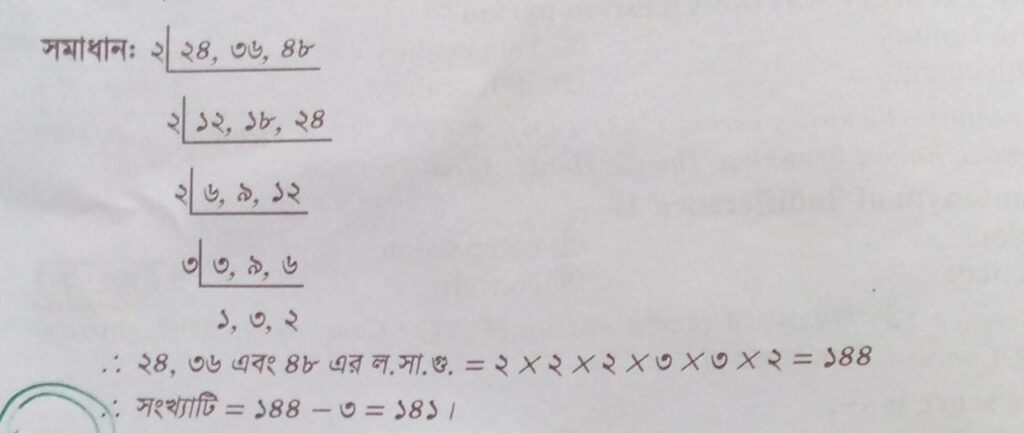 সমাধানঃ ২| ২৪, ৩৬, ৪৮
২| ১২, ১৮, ২৪
২| ৬, ৯, ১২
৩| ৩, ৯, ৬
১, ৩, ২
∴ ২৪, ৩৬ এবং ৪৮ এর ল.সা.গু. = ২ × ২ × ২ × ৩ × ৩ × ২ = ১৪৪
∴ সংখ্যাটি = ১৪৪ – ৩ = ১৪১।